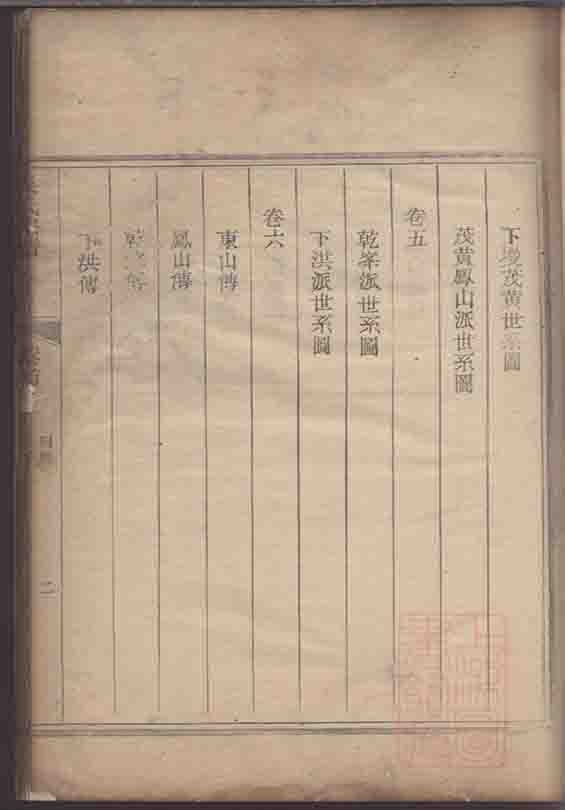 下塅茂黄世系圖
茂黄鳳山派世系圖
卷五
乾峯派世系圖
下洪派世系圖
卷六
東山傳
鳳山傳
乾 傳
下洪傳
二